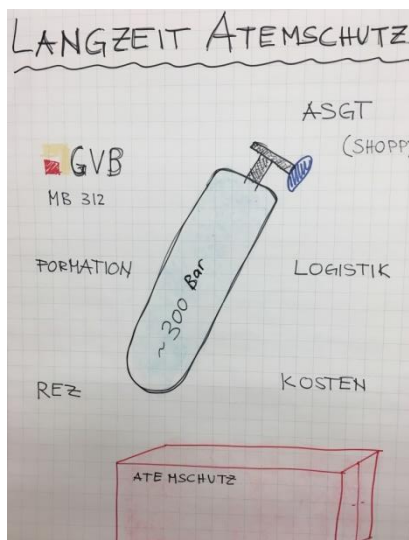 LANGZEIT ATEMSCHUTZ
ASGT
(SHOPP
GVB
MB 312
FORMATION
LOGISTIK
~300 Bar
REZ
KOSTEN
ATEMSCHUTZ